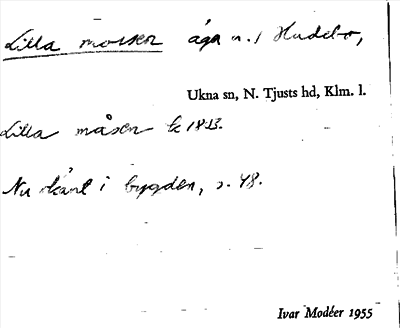 Lilla mossen äga n. / Hudebo,
Ukna sn, N. Tjusts hd, Klm. l.
Lilla måsen k 1813.
Nu känt i bygden, s. 48.
Ivar Modéer 1955